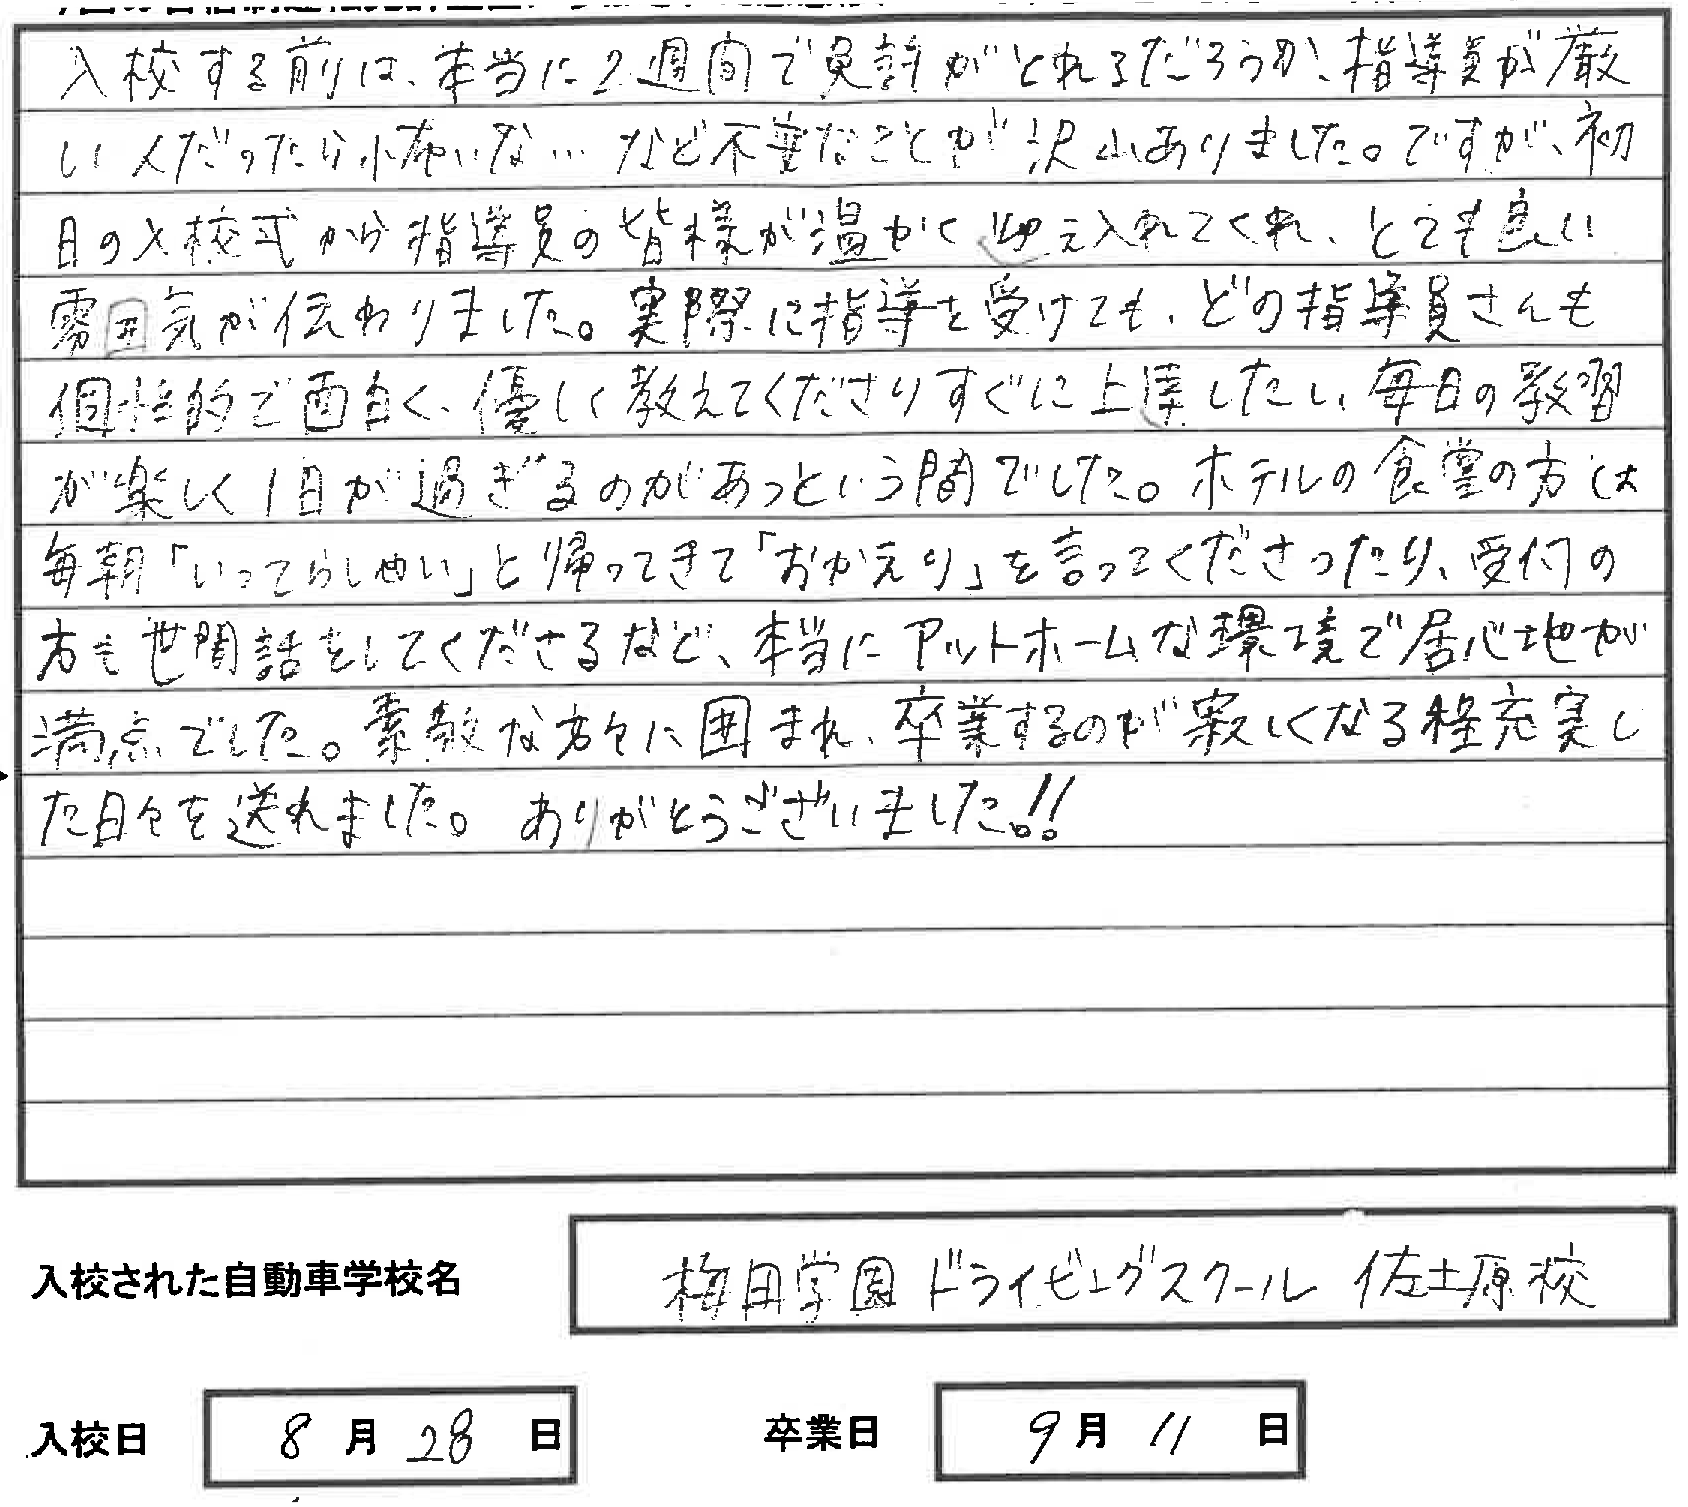 入校する前は、本当に2週間で免許がとれるだろうか、指導員が厳
しい人だったら怖いな… など不安なことが沢山ありました。ですが、初
日の入校式から指導員の皆様が温かく迎え入れてくれ、とても良い
雰囲気が伝わりました。実際に指導を受けても、どの指導員さんも
個性的で面白く、優しく教えてくださりすぐに上達したし、毎日の教習
が楽しく1日が過ぎるのがあっという間でした。ホテルの食堂の方は
毎朝「いってらしゃい」と帰ってきて「おかえり」を言ってくださったり、受付の
方も世間話をしてくださるなど、本当にアットホームな環境で居心地が
満点でした。素敵な方々に囲まれ、卒業するのが寂しくなる程充実し
た日々を送れました。ありがとうございました!!
入校された自動車学校名 梅田学園ドライビングスクール 佐土原校
入校日 8月28日 卒業日 9月11日